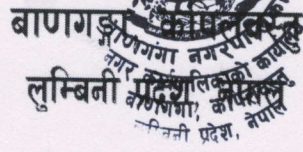 बाणगङ्गा कपिलवस्तु
लुम्बिनी प्रदेश, नेपाल
बाणगंगा नगरपा
नगर कार्यपालिकाको कार्या
बाणगंगा, कपिलवस्तु
लुम्बिनी प्रदेश, नेपाल